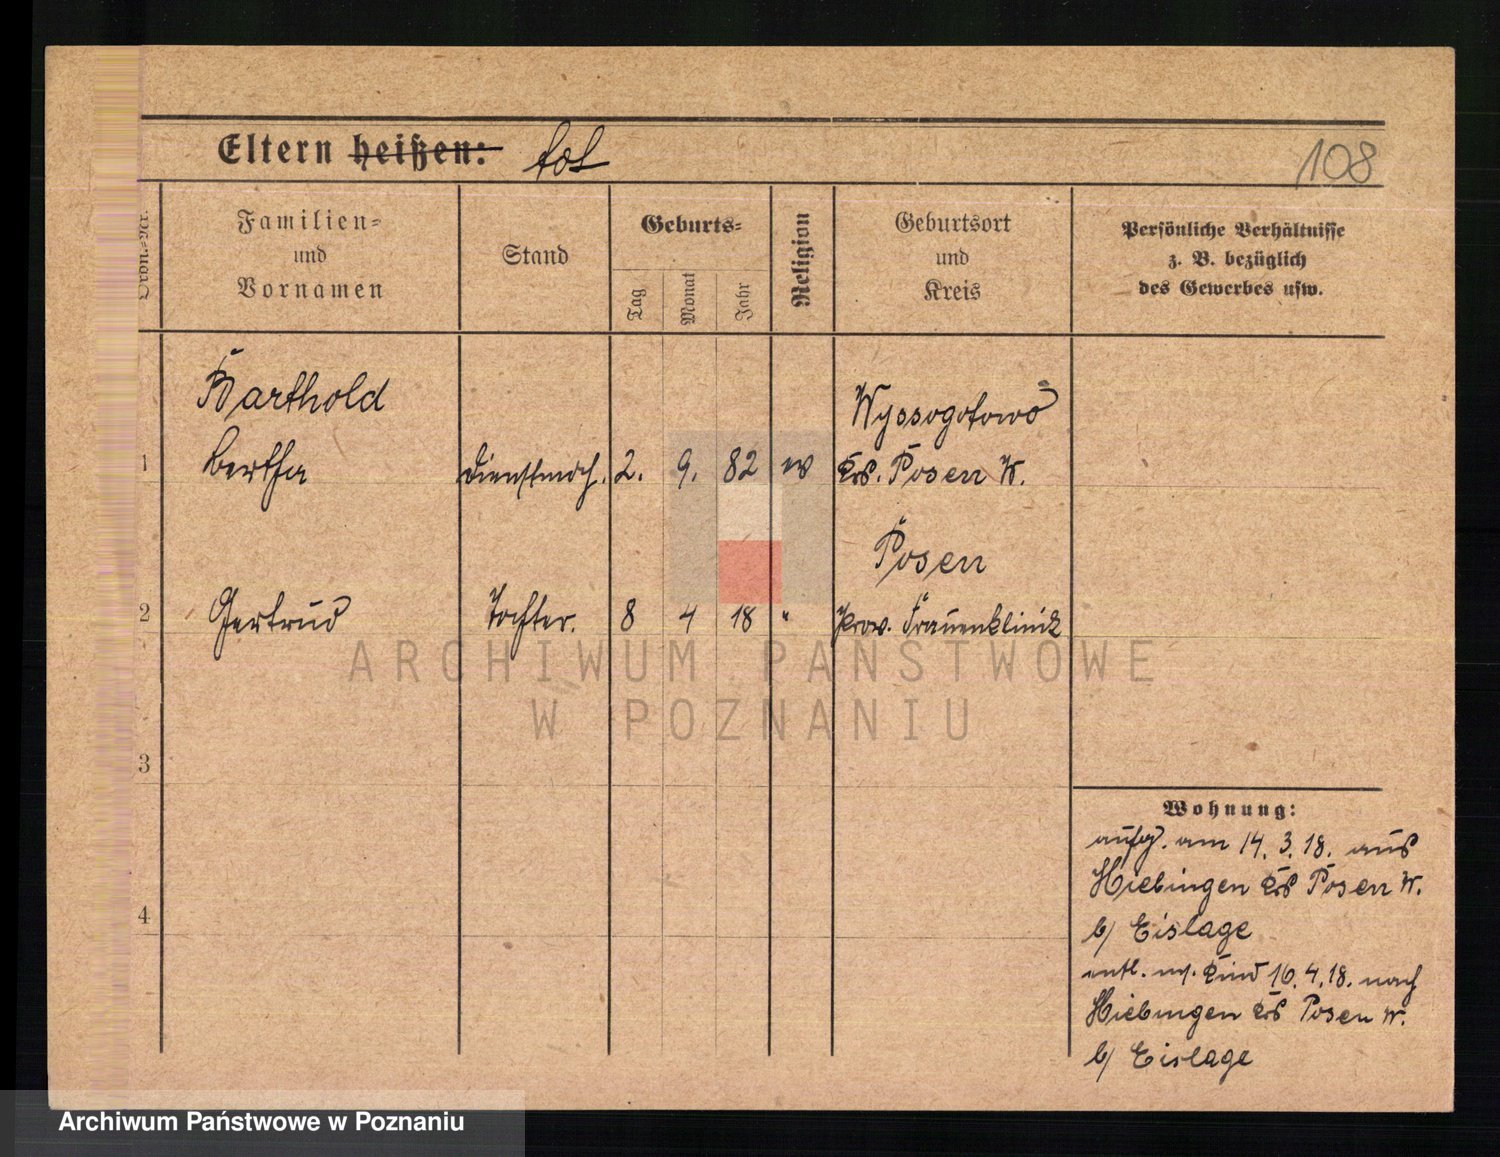 Eltern heißen: tot
108
Ordn.-Nr.
Familien-
und
Vornamen
Stand
Geburts-
Tag
Monat
Jahr
Religion
Geburtsort
und
Kreis
Persönliche Verhältnisse
z. B. bezüglich
des Gewerbes usw.
Barthold
Wyssogotowo
1 Bertha Dienstmdch. 2. 9. 82 ev Krs. Posen W.
Posen
2 Gertrud Tochter. 8 4 18 " Prov. Frauenklinik
ARCHIWUM PAŃSTWOWE
W POZNANIU
3
Wohnung:
aufg. am 14. 3. 18. aus
Hiebingen Krs Posen W.
4
b/ Eislage
entl. m. Kind 16. 4. 18. nach
Hiebingen Krs Posen W.
b/ Eislage
Archiwum Państwowe w Poznaniu